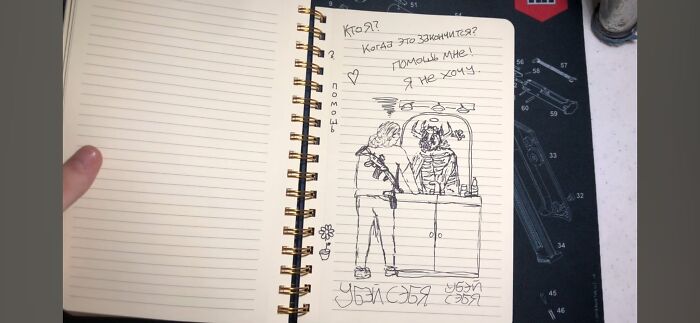 Кто я?
Когда это закончится?
помошь мне!
Я не хочу.
помошь
УБЭЙ СЭБЯ
УБЭЙ
СЭБЯ
56
55
60
59
33
32
34
45
46